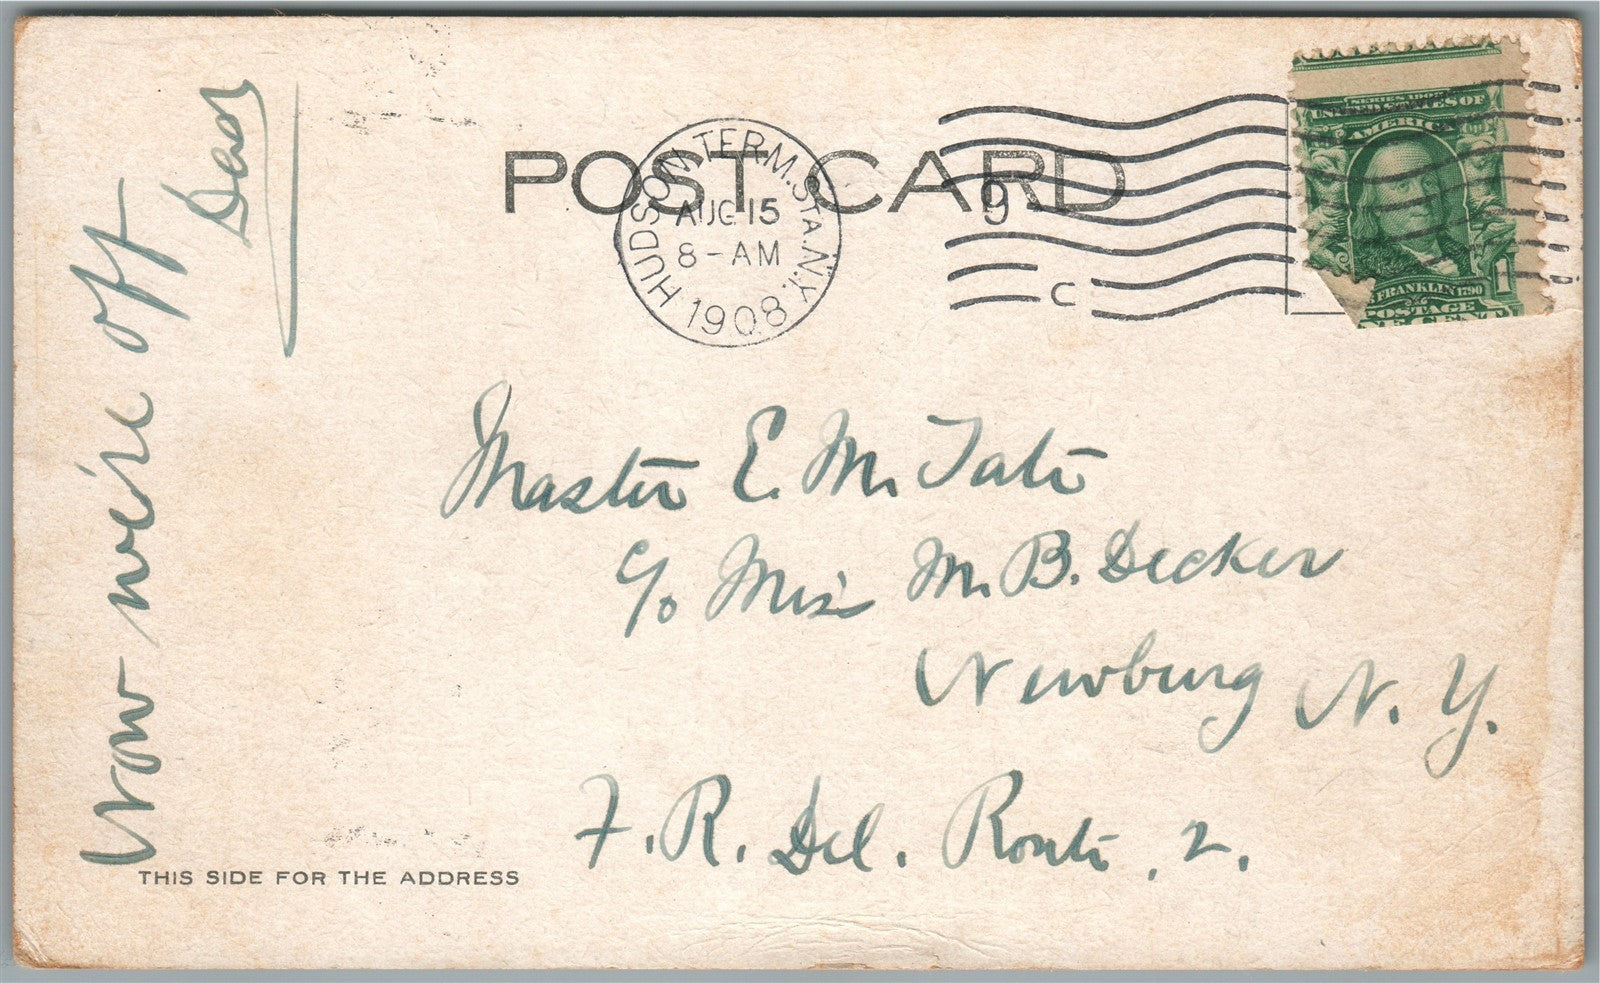 POST CARD
HUDSON TERM. STA. N.Y.
AUG 15
8-AM
1908
9
C
SERIES 1902
UNITED STATES OF
AMERICA
FRANKLIN 1790
POSTAGE
1
Master E. M. Tate
c/o Miss M. B. Decker
Newburg N. Y.
F. R. Del. Route, 2.
Now we're off
THIS SIDE FOR THE ADDRESS